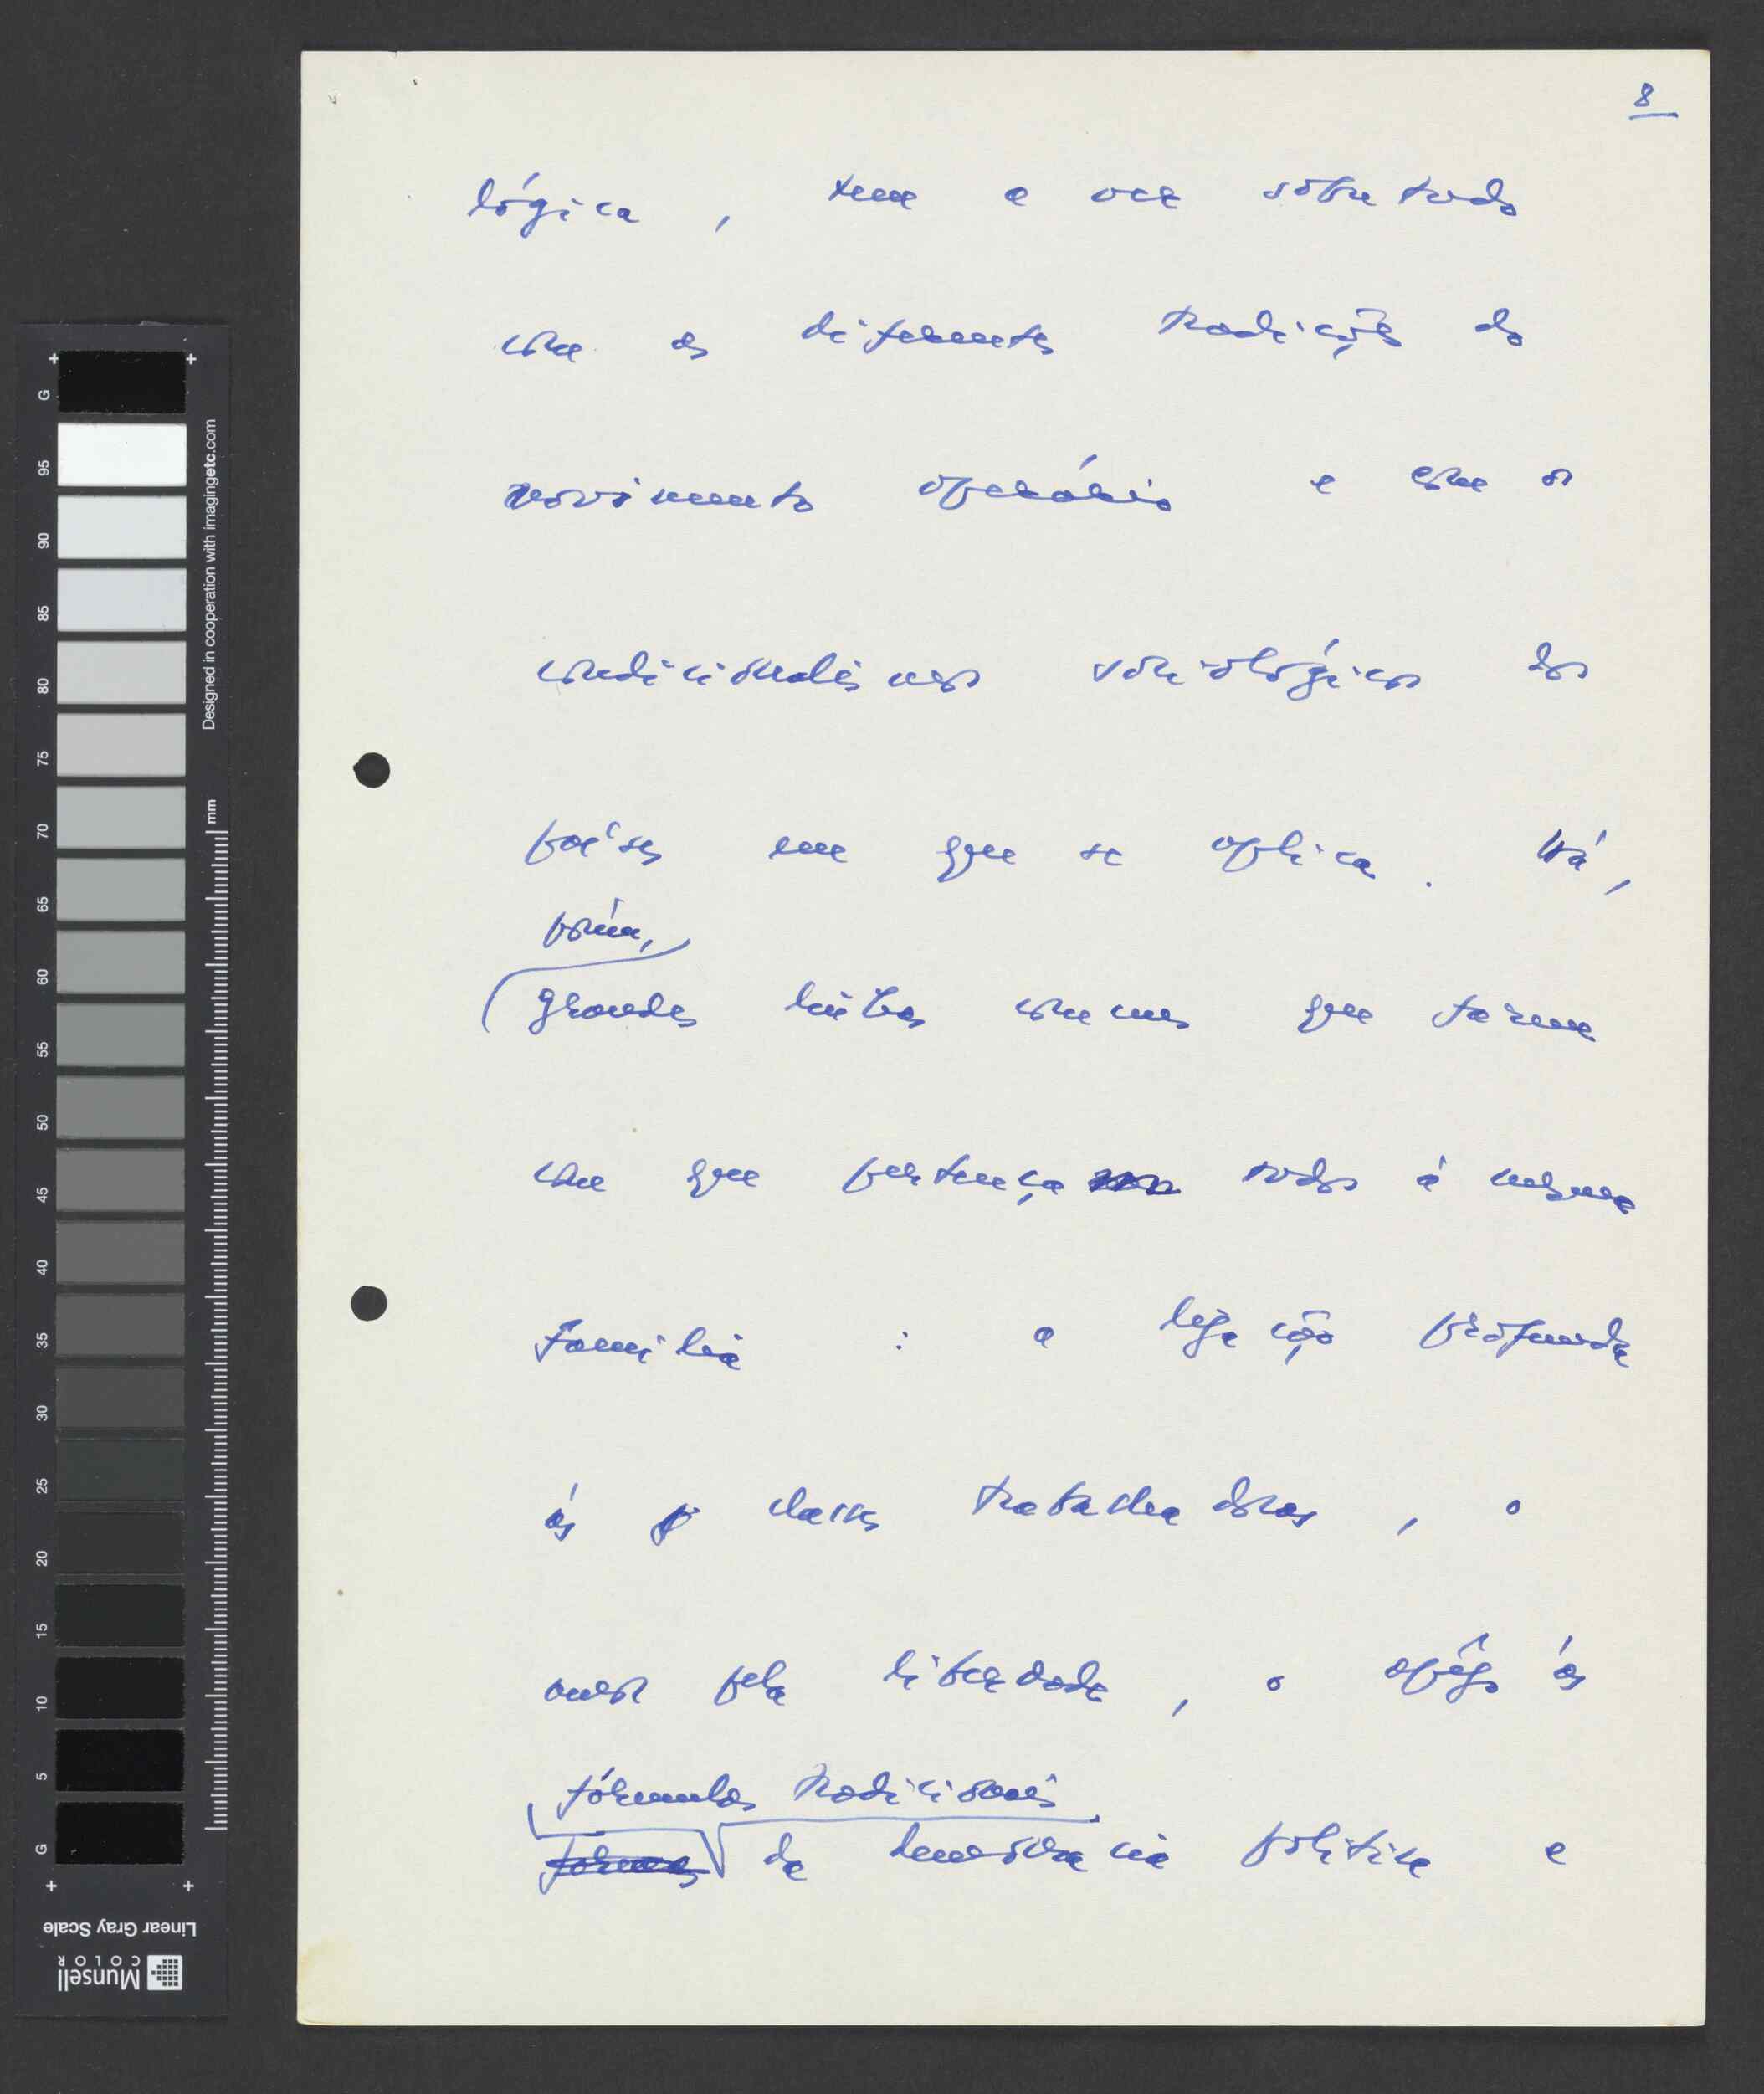 8
lógica, tem a ver sobretudo
com as diferentes tradições do
movimento operário e com os
condicionalismos sociológicos dos
países em que se aplica. Há,
porém,
grandes linhas comuns que fazem
com que pertença todos à mesma
família : a ligação profunda
às classes trabalhadoras, o
amor pela liberdade, o apêgo às
fórmulas tradicionais
formas da democracia política e
G
95
90
85
80
75
70
65
60
55
50
45
40
35
30
25
20
15
10
5
G
Designed in cooperation with imagingetc.com
mm
Linear Gray Scale
Munsell
COLOR